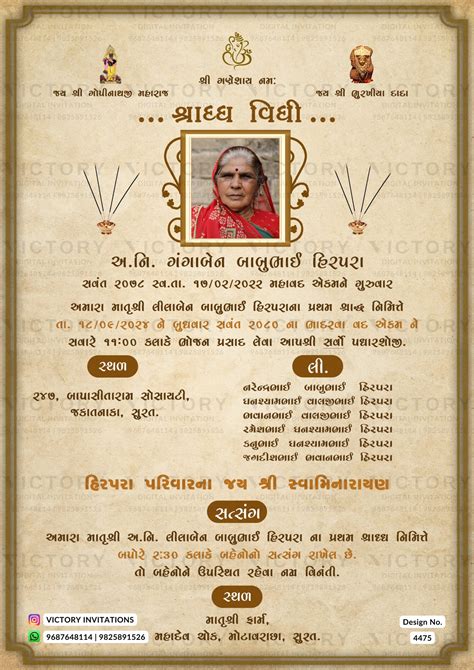 શ્રી ગણેશાય નમઃ
જય શ્રી ગોપીનાથજી મહારાજ
જય શ્રી ભુરખીયા દાદા
... શ્રાધ્ધ વિધી ...
અ.નિ. ગંગાબેન બાબુભાઈ હિરપરા
સવંત ૨૦૭૮ સ્વ.તા. ૧૭/૦૨/૨૦૨૨ મહાવદ એકમને ગુરુવાર
અમારા માતૃશ્રી લીલાબેન બાબુભાઈ હિરપરાના પ્રથમ શ્રાદ્ધ નિમિત્તે
તા. ૧૮/૦૯/૨૦૨૪ ને બુધવાર સવંત ૨૦૮૦ ના ભાદરવા વદ એકમ ને
સવારે ૧૧:૦૦ કલાકે ભોજન પ્રસાદ લેવા આપશ્રી સર્વો પધારશોજી.
સ્થળ
૨૪૭, બાપાસીતારામ સોસાયટી,
જકાતનાકા, સુરત.
લી.
નરેન્દ્રભાઈ બાબુભાઈ હિરપરા
ઘનશ્યામભાઈ વાલજીભાઈ હિરપરા
ભવાનભાઈ વાલજીભાઈ હિરપરા
રમેશભાઈ ઘનશ્યામભાઈ હિરપરા
કનુભાઈ ઘનશ્યામભાઈ હિરપરા
જગદીશભાઈ ભવાનભાઈ હિરપરા
હિરપરા પરિવારના જય શ્રી સ્વામિનારાયણ
સત્સંગ
અમારા માતૃશ્રી અ.નિ. લીલાબેન બાબુભાઈ હિરપરા ના પ્રથમ શ્રાધ્ધ નિમિત્તે
બપોરે ૨:૩૦ કલાકે બહેનોનો સત્સંગ રાખેલ છે.
તો બહેનોને ઉપસ્થિત રહેવા નમ્ર વિનંતી.
સ્થળ
માતૃશ્રી ફાર્મ,
મહાદેવ ચોક, મોટાવરાછા, સુરત.
VICTORY INVITATIONS
9687648114 | 9825891526
Design No.
4475